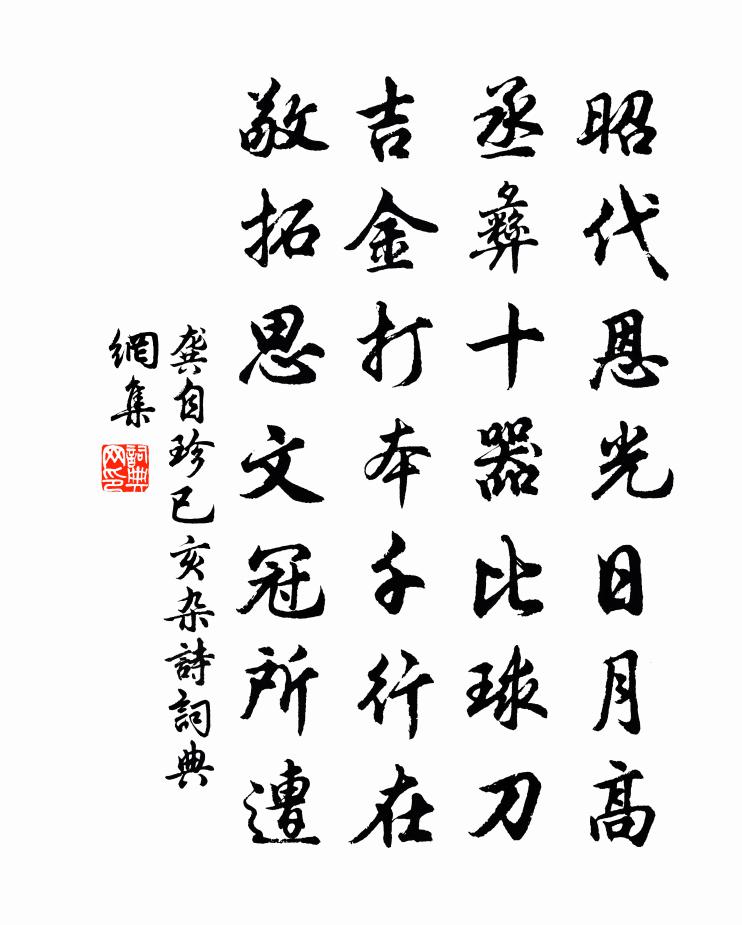 昭代恩光日月高
丞彝十器比球刀
吉金打本千行在
敬拓思文冠所遭
龔自珍已亥杂詩詞典
網集
詞典
网印